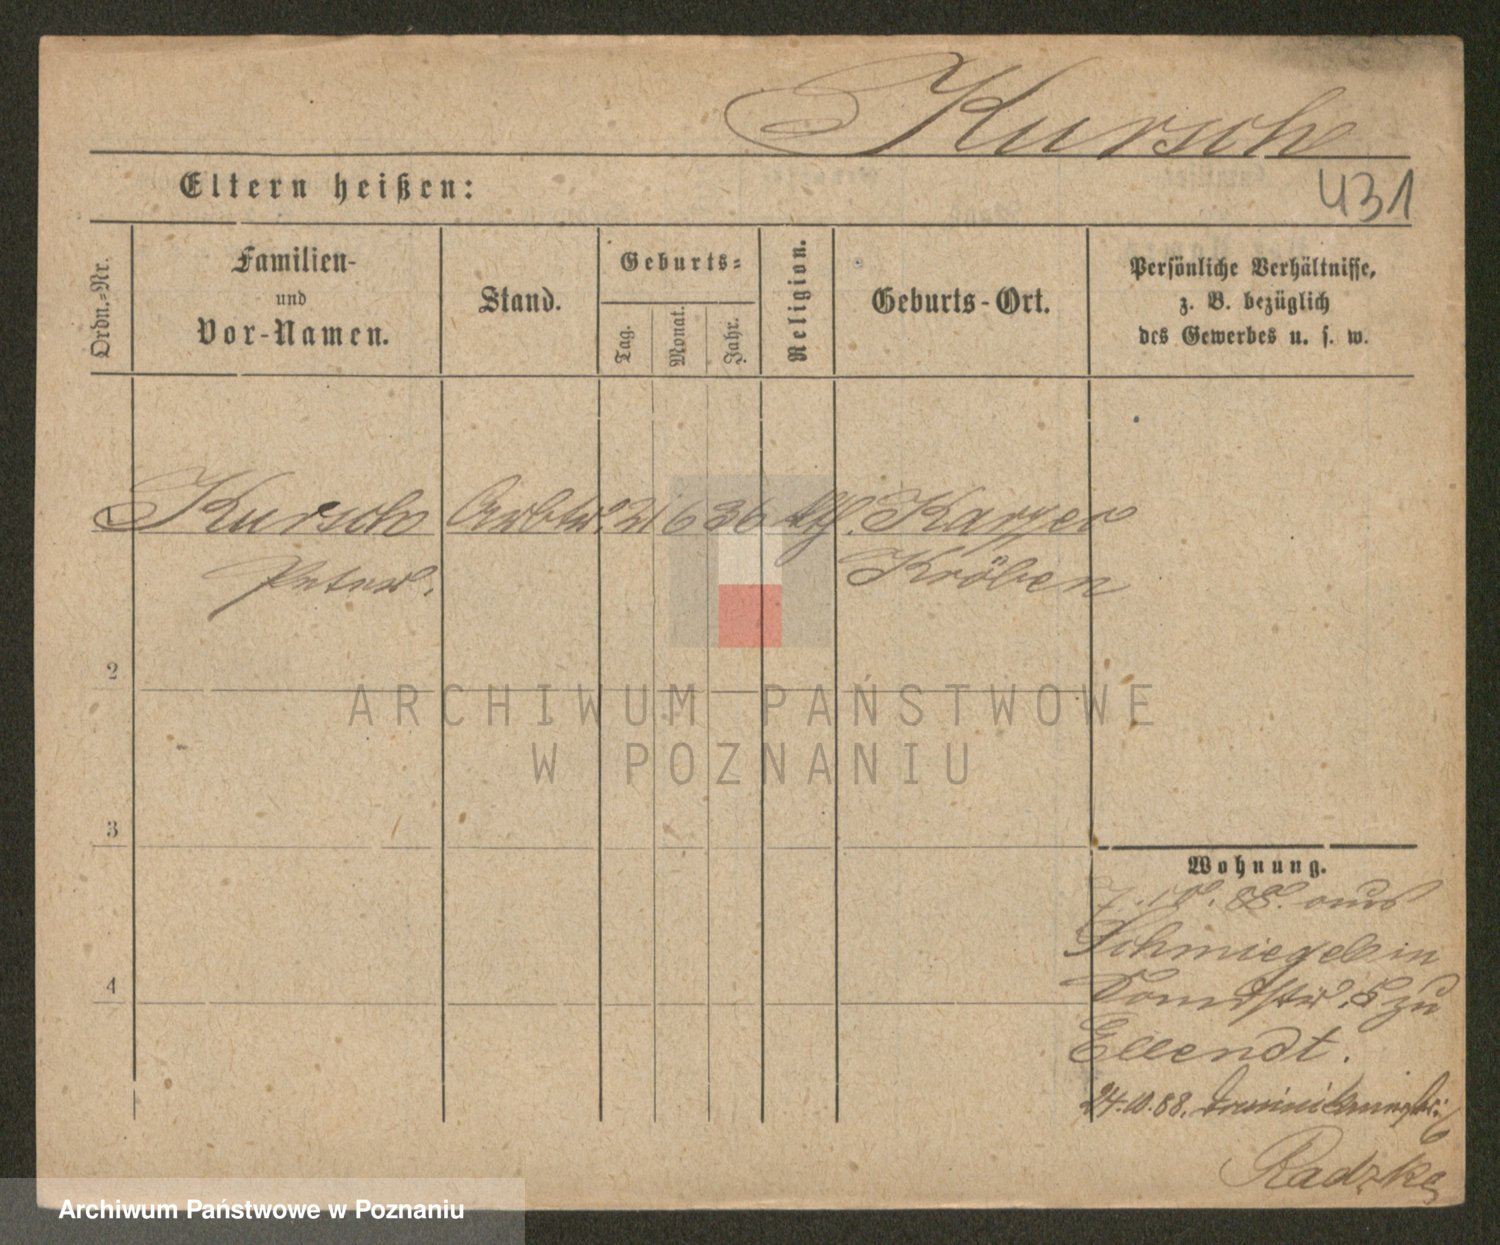 Kursch
Eltern heißen:
431
Ordn.-Nr.
Familien-
und
Vor-Namen.
Stand.
Geburts-
Tag.
Monat.
Jahr.
Religion.
Geburts-Ort.
Persönliche Verhältnisse,
z. B. bezüglich
des Gewerbes u. s. w.
Kursch Arbtr. 21 6 36 kth. Karzec
Peter. Kröben
2
3
4
Wohnung.
7. 10. 88. aus
Schmiegel in
Domstr. 5 zu
Ellendt.
24.10.88.
Radzke
ARCHIWUM PAŃSTWOWE
W POZNANIU
Archiwum Państwowe w Poznaniu